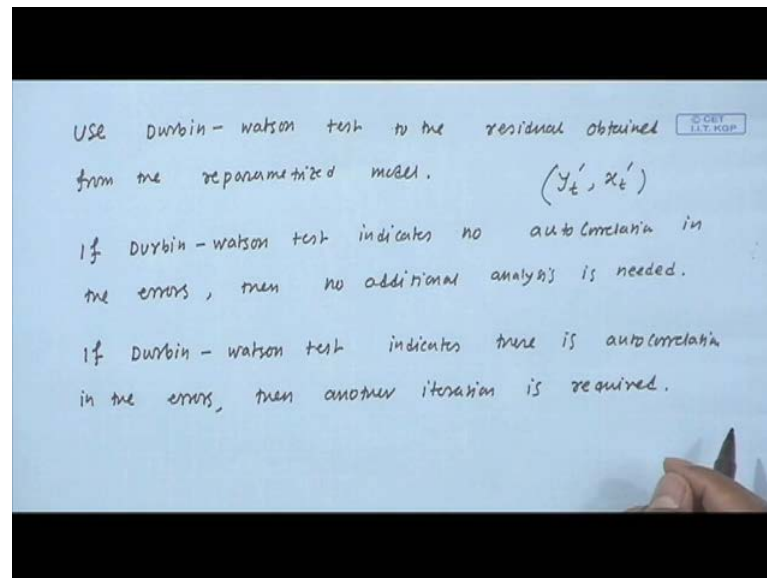 Use Durbin - Watson test to the residual obtained
© CET
I.I.T. KGP
from the reparametrized model. (y_t', x_t')
If Durbin - Watson test indicates no autocorrelation in
the errors, then no additional analysis is needed.
If Durbin - Watson test indicates there is autocorrelation
in the errors, then another iteration is required.